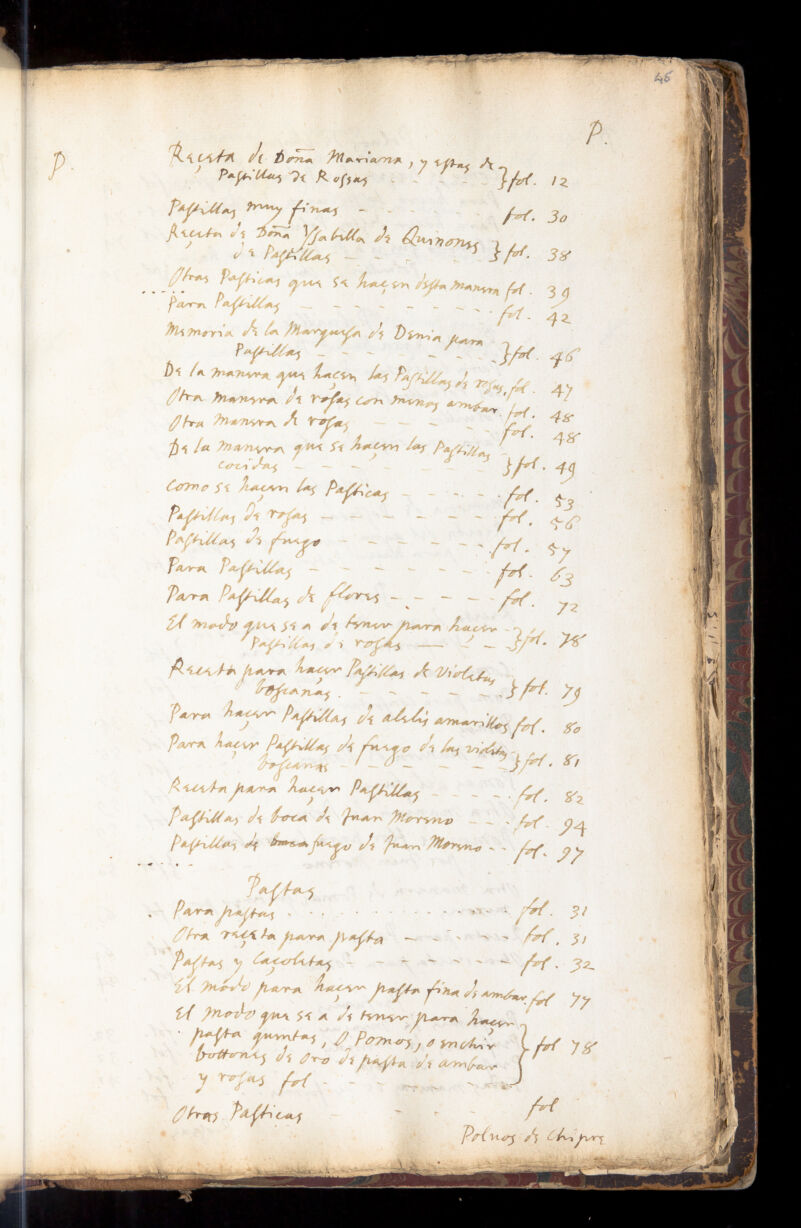 46
P.
P.
Reçeta de Doña Mariana, y estas de
Pastillas de Rossas - - - - - } fol. 12
Pastillas muy finas - - - - - fol. 30
Reçeta de Doña Ysabella de Quinones
de Pastillas - - - - - } fol. 38
Otras Pasticas que se haçen desta manera fol. 39
Para Pastillas - - - - - fol. 42
Memoria de la Marquesa de Denia para
Pastillas - - - - - } fol. 46
De la manera que haçen las Pastillas de rosas, fol. 47
Otra manera de rosas con menos ambar. fol. 48
Otra manera de rosas - - - - fol. 48
De la manera que se haçen las Pastillas
cocidas - - - - - } fol. 49
Como se haçen las Pasticas - - - - - fol. 53
Pastillas de rosas - - - - - fol. 56
Pastillas de fuego - - - - - fol. 57
Para Pastillas - - - - - fol. 63
Para Pastillas de flores - - - - - fol. 72
El modo que se a de tener para haçer
Pastillas de rosas - - - } fol. 78
Reçeta para haçer Pastillas de Violetas
boscanas. - - - - - } fol. 79
Para haçer Pastillas de alelis amarillos fol. 80
Para haçer Pastillas de fuego de las violetas
boscanas - - - - - } fol. 81
Receta para haçer Pastillas - - - - fol. 82
Pastillas de boca de Juan Moreno - - - fol. 94
Pastillas de boca fuego de Juan Moreno - - fol. 97
Pastas
Para pastas . . . . . . . . fol. 31
Otra reçeta para pasta - - - - fol. 31
Pastas y caçoletas - - - - - fol. 32
El modo para haçer pasta fina de ambar. fol 77
El modo que se a de tener para haçer
pasta quentas, o Pomos, o enchir
bottones de oro de pasta de ambar
y rosas fol - - - - - } fol 78
Otras Pasticas - - - - fol
Poluos de Chipre